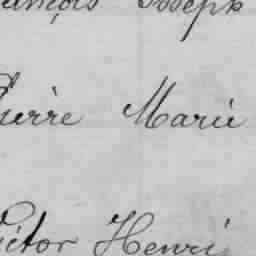 François Joseph
Pierre Marie
Victor Henri